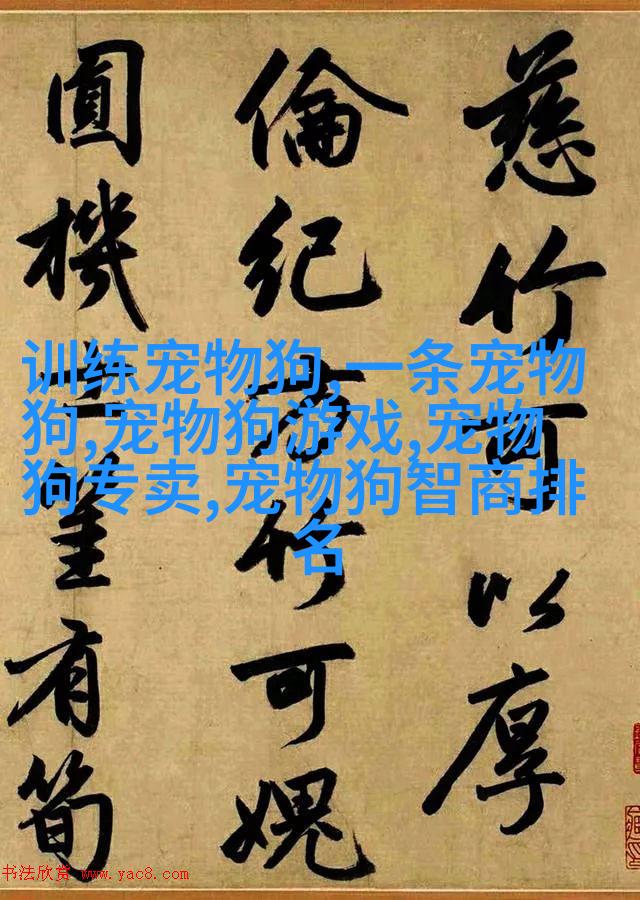 慈竹可以厚
倫紀方竹可媿
圓機士筀有筍
训练宠物狗,一条宠物
狗,宠物狗游戏,宠物
狗专卖,宠物狗智商排
名
书法欣赏 www.yac8.com